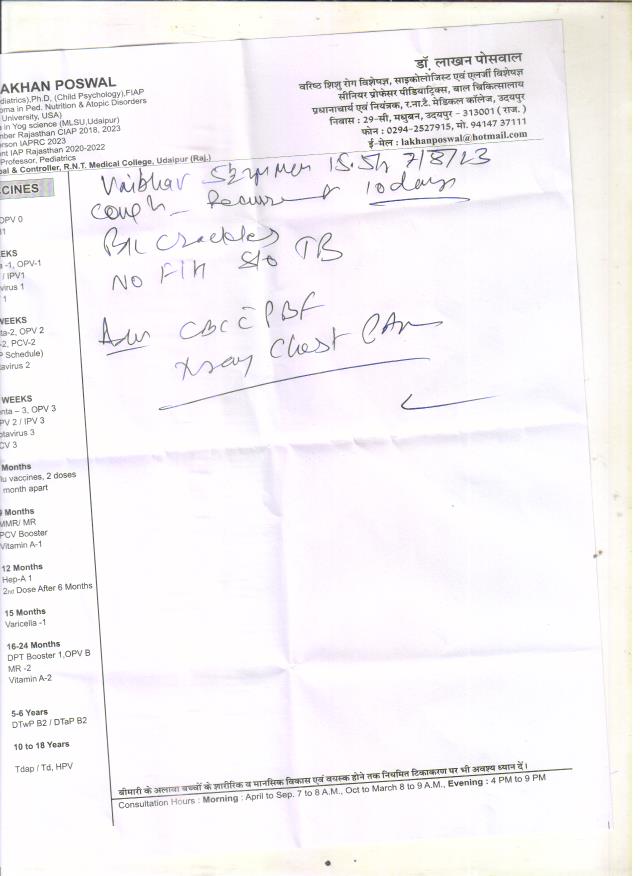 AKHAN POSWAL
diatrics),Ph.D, (Child Psychology),FIAP
oma in Ped. Nutrition & Atopic Disorders
University, USA)
a in Yog science (MLSU,Udaipur)
mber Rajasthan CIAP 2018, 2023
erson IAPRC 2023
nt IAP Rajasthan 2020-2022
Professor, Pediatrics
pal & Controller, R.N.T. Medical College, Udaipur (Raj.)
डॉ. लाखन पोसवाल
वरिष्ठ शिशु रोग विशेषज्ञ, साइकोलोजिस्ट एवं एलर्जी विशेषज्ञ
सीनियर प्रोफेसर पीडियाट्रिक्स, बाल चिकित्सालय
प्रधानाचार्य एवं नियंत्रक, र.ना.टै. मेडिकल कॉलेज, उदयपुर
निवास : 29-सी, मधुबन, उदयपुर - 313001 ( राज. )
फोन : 0294-2527915, मो. 94147 37111
ई-मेल : lakhanposwal@hotmail.com
CINES
OPV 0
EEKS
a -1, OPV-1
/ IPV1
virus 1
1
WEEKS
ta-2, OPV 2
-2, PCV-2
P Schedule)
tavirus 2
WEEKS
nta – 3, OPV 3
PV 2 / IPV 3
otavirus 3
CV 3
Months
lu vaccines, 2 doses
month apart
9 Months
MMR/ MR
PCV Booster
Vitamin A-1
12 Months
Hep-A 1
2nd Dose After 6 Months
15 Months
Varicella -1
16-24 Months
DPT Booster 1,OPV B
MR -2
Vitamin A-2
5-6 Years
DTwP B2 / DTaP B2
10 to 18 Years
Tdap / Td, HPV
Vaibhav 7/8/23
Cough Recurrent 10 days
B/L Crackles
NO F/H S/o TB
Adv CBC c̄ PBF
Xray Chest PA
बीमारी के अलावा बच्चों के शारीरिक व मानसिक विकास एवं वयस्क होने तक नियमित टिकाकरण पर भी अवश्य ध्यान दें।
Consultation Hours : Morning : April to Sep. 7 to 8 A.M., Oct to March 8 to 9 A.M., Evening : 4 PM to 9 PM